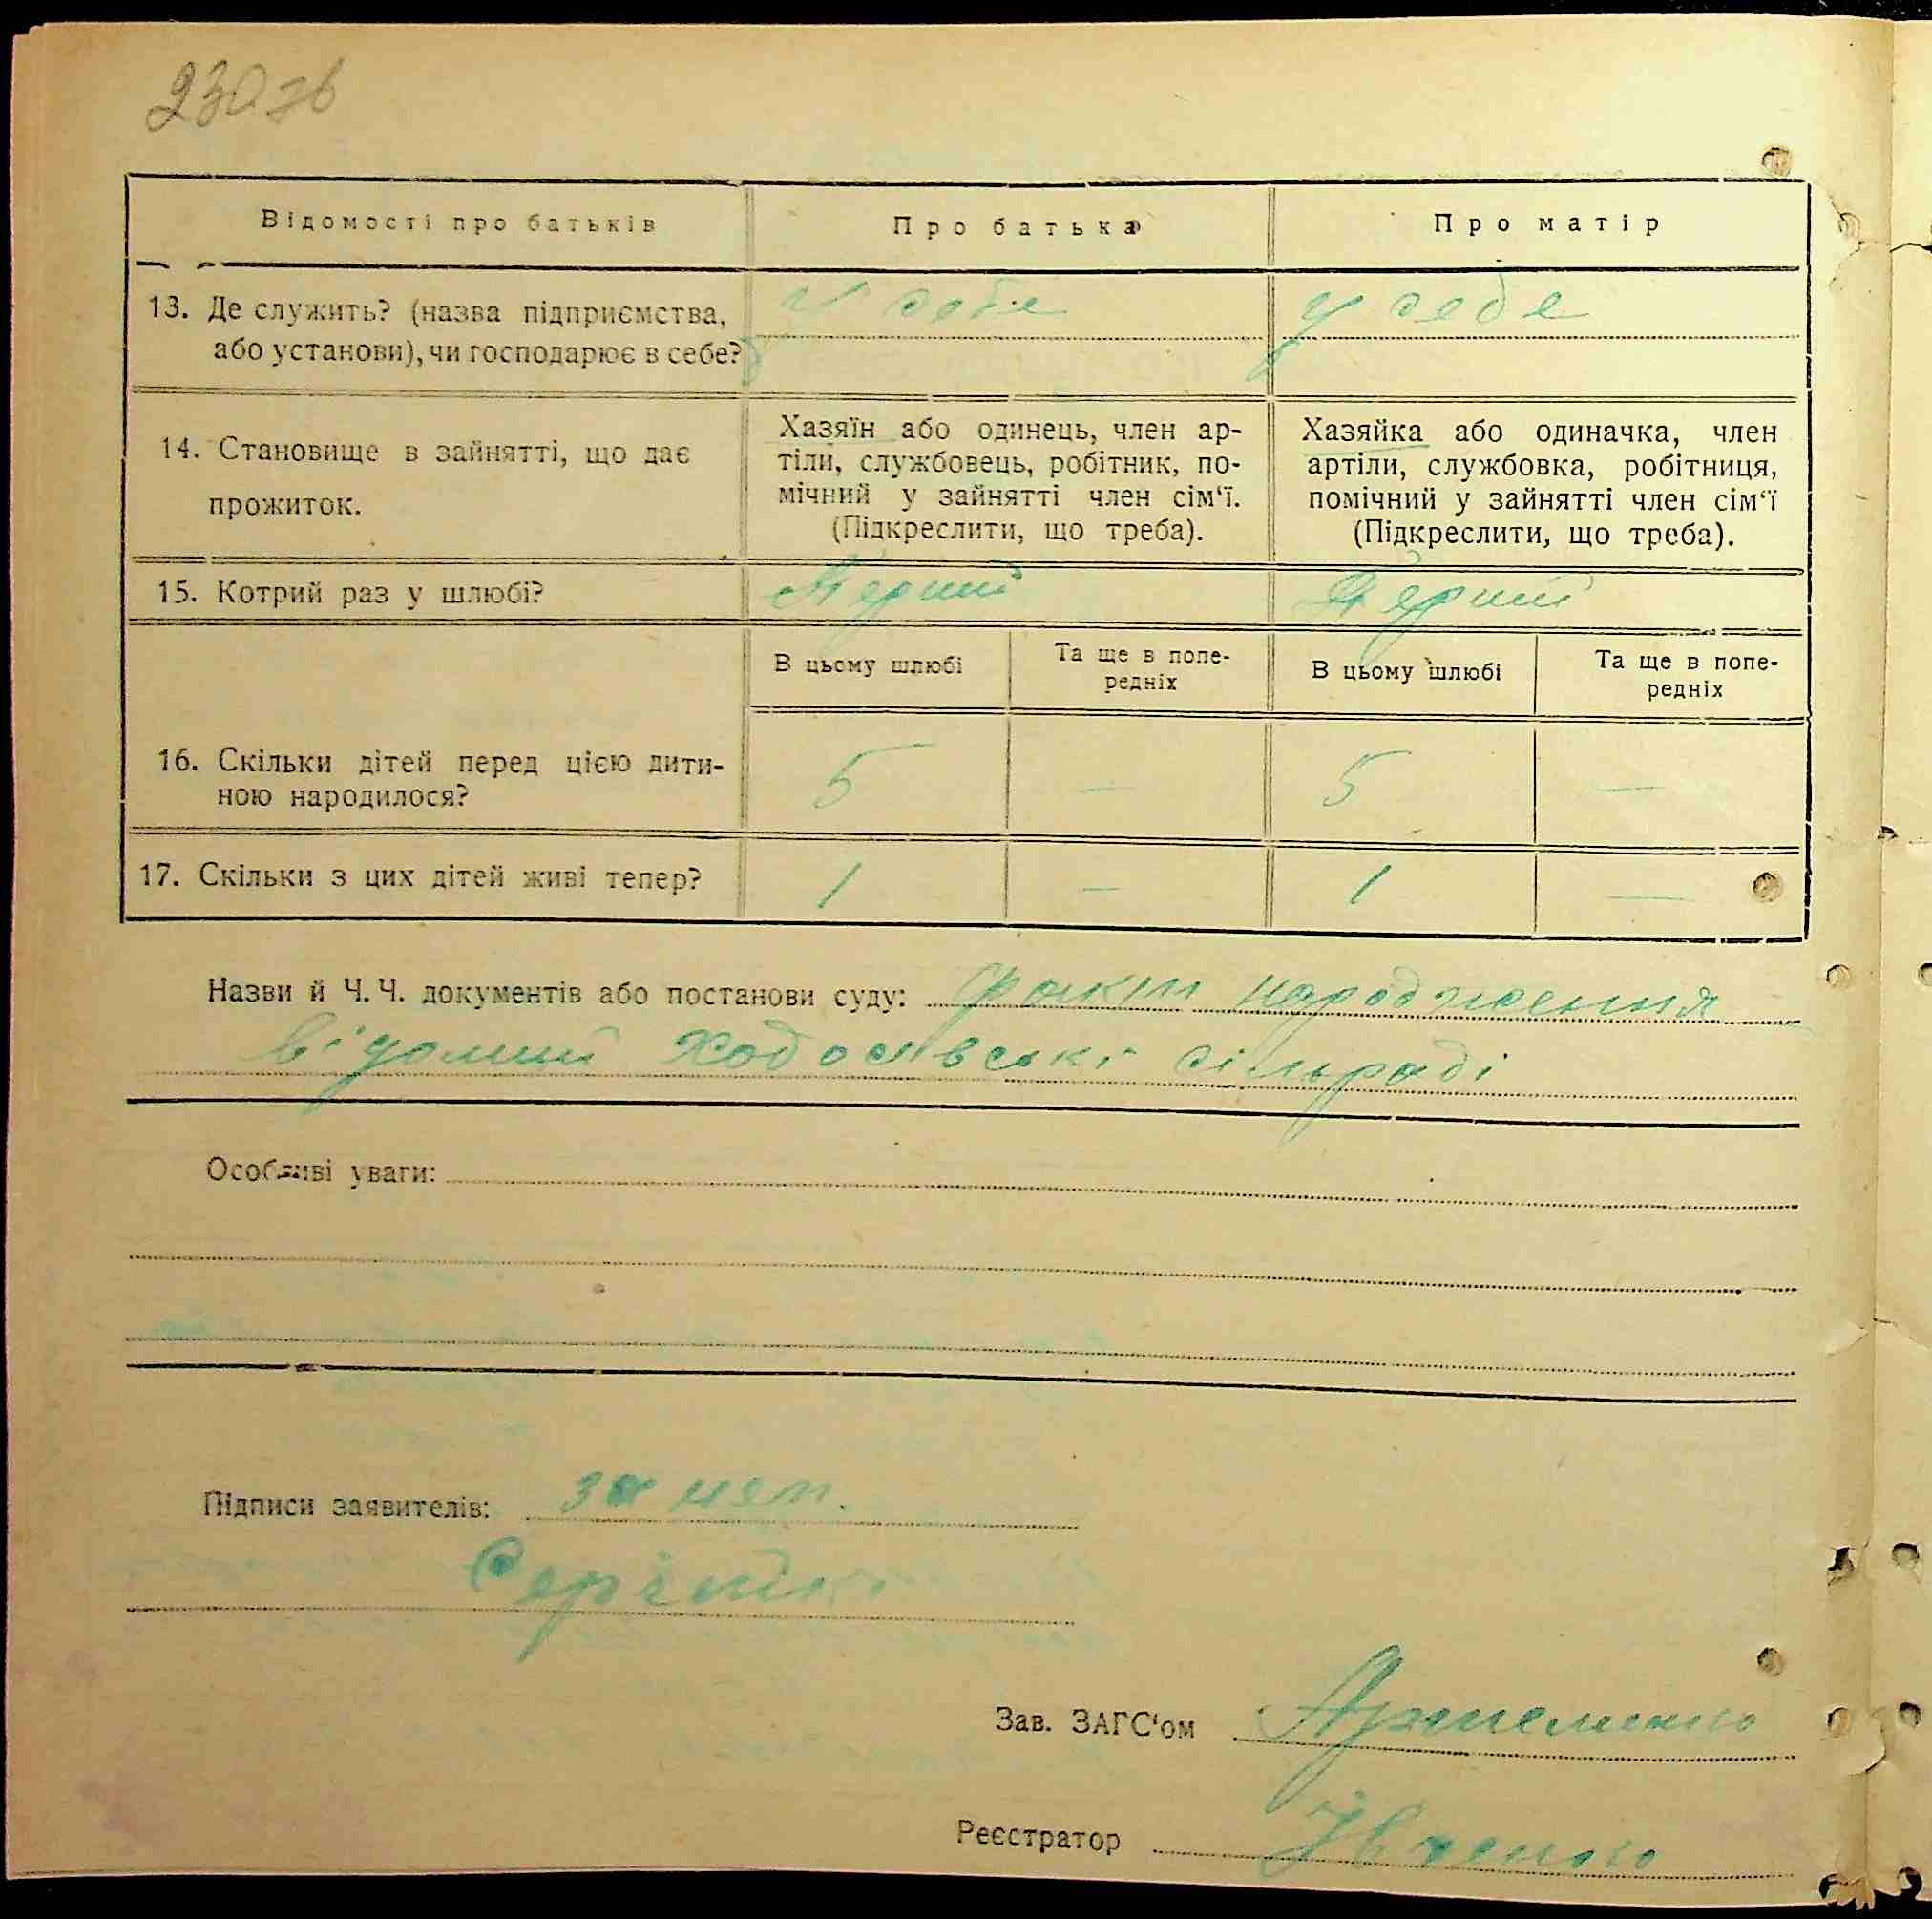 230 зв
Відомості про батьків
Про батька
Про матір
13. Де служить? (назва підприємства,
або установи), чи господарює в себе?
У себе
у себе
14. Становище в зайнятті, що дає
прожиток.
Хазяїн або одинець, член ар-
тіли, службовець, робітник, по-
мічний у зайнятті член сім‘ї.
(Підкреслити, що треба).
Хазяйка або одиначка, член
артіли, службовка, робітниця,
помічний у зайнятті член сім‘ї
(Підкреслити, що треба).
15. Котрий раз у шлюбі?
Перший
Перший
В цьому шлюбі
Та ще в попе-
редніх
В цьому шлюбі
Та ще в попе-
редніх
16. Скільки дітей перед цією дити-
ною народилося?
5 — 5 —
17. Скільки з цих дітей живі тепер?
1 — 1 —
Назви й Ч. Ч. документів або постанови суду: факт народження
відомий Ходосівські сільраді
Особливі уваги:
Підписи заявителів: за неп.
Зав. ЗАГС‘ом Артеменко
Реєстратор Івченко